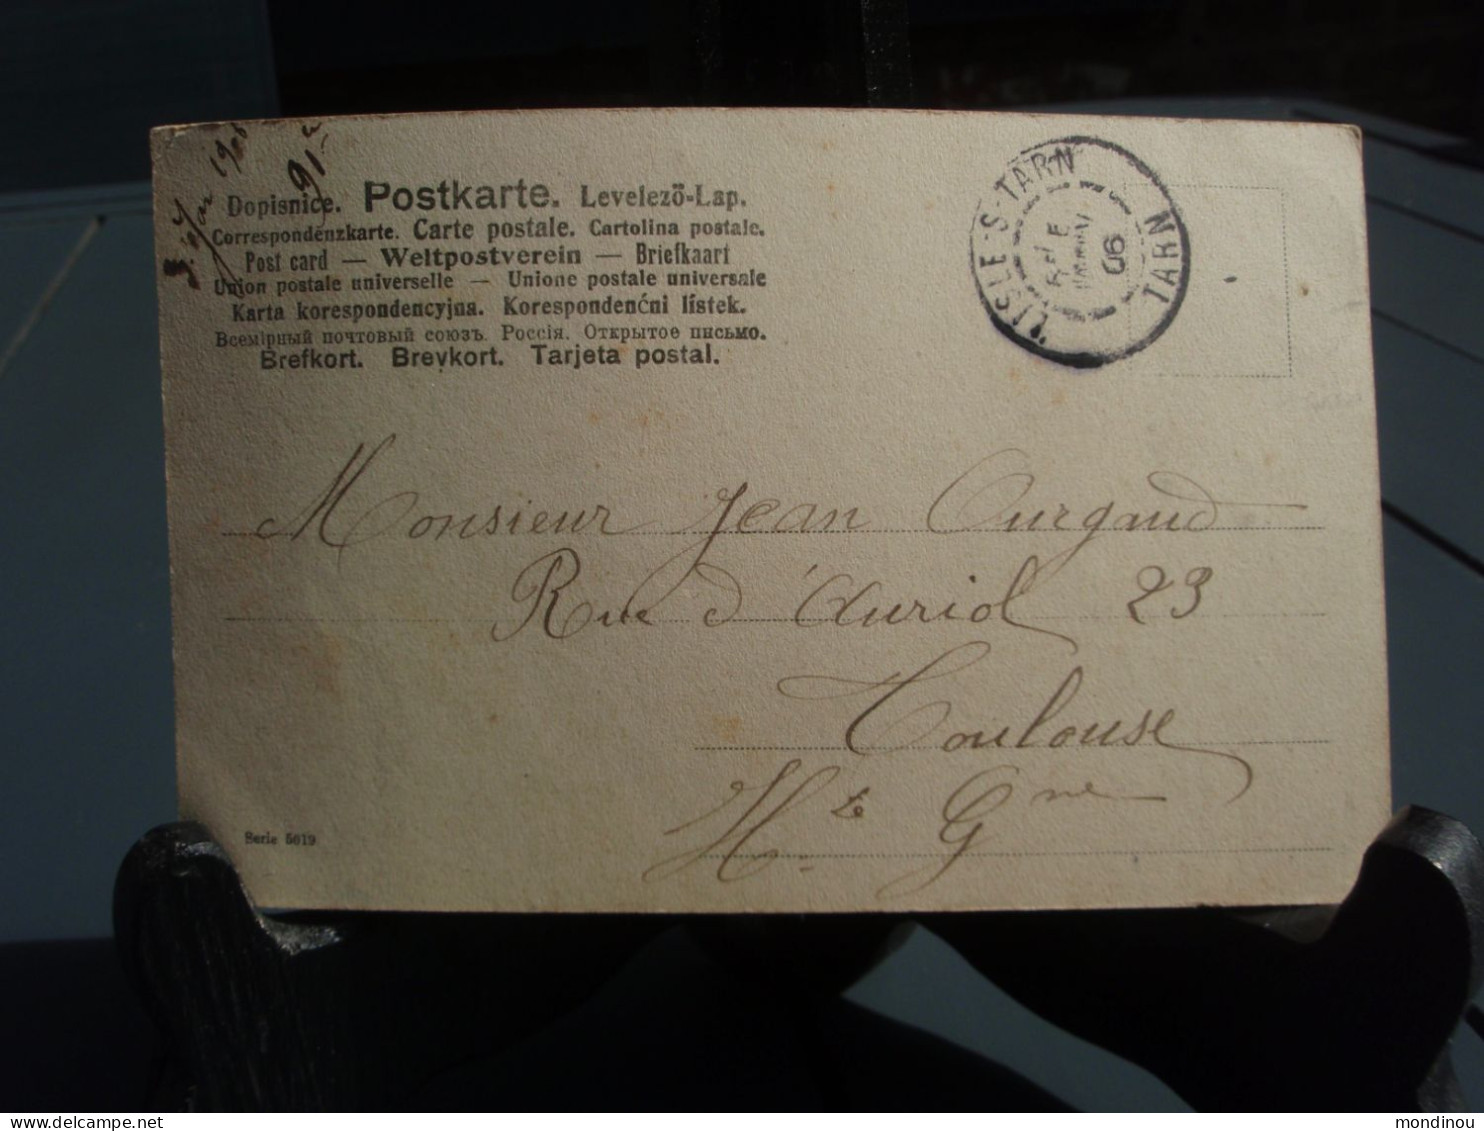 1906
91
Dopisnice. Postkarte. Levelező-Lap.
Correspondenzkarte. Carte postale. Cartolina postale.
Post card — Weltpostverein — Briefkaart
Union postale universelle — Unione postale universale
Karta korespondencyjna. Korespondenćni lístek.
Всемірный почтовый союзъ. Россія. Открытое письмо.
Brefkort. Brevkort. Tarjeta postal.
LISLE-S-TARN
TARN
06
Monsieur Jean Ourgaud
Rue d'Auriol 23
Toulouse
Hte Gne
Serie 5619
mondinou